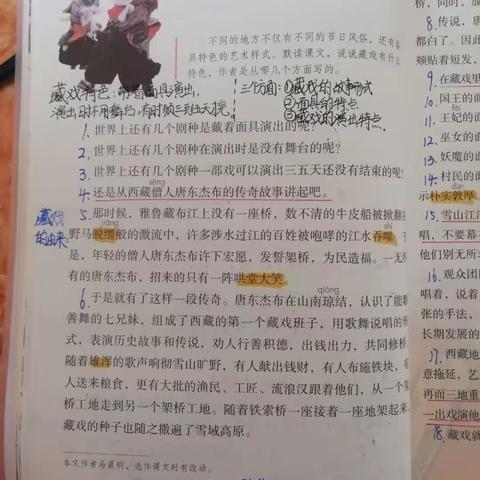 不同的地方不仅有不同的节日风俗，还有各
具特色的艺术样式。默读课文，说说藏戏有什么
特色，作者是从哪几个方面写的。
藏戏特色：带着面具演出，
演出时不用舞台，有时候三到五天
三个方面：①藏戏的故事形式
②面具的特点
③藏戏的演出特点.
1. 世界上还有几个剧种是戴着面具演出的呢？
2. 世界上还有几个剧种在演出时是没有舞台的呢？
3. 世界上还有几个剧种一部戏可以演出三五天还没有结束的呢？
sēng
4. 还是从西藏僧人唐东杰布的传奇故事讲起吧。
藏戏
的由来
5. 那时候，雅鲁藏布江上没有一座桥，数不清的牛皮船被掀翻
jiāng shì
野马脱缰般的激流中，许多涉水过江的百姓被咆哮的江水吞噬
是，年轻的僧人唐东杰布许下宏愿，发誓架桥，为民造福。一无所
有的唐东杰布，招来的只有一阵哄堂大笑。
qióng
6. 于是就有了这样一段传奇。唐东杰布在山南琼结，认识了能歌
善舞的七兄妹，组成了西藏的第一个藏戏班子，用歌舞说唱的形
式，表演历史故事和传说，劝人行善积德，出钱出力，共同修桥
随着雄浑的歌声响彻雪山旷野，有人献出钱财，有人布施铁块，
人送来粮食，更有大批的渔民、工匠、流浪汉跟着他们，从一个架
桥工地走到另一个架桥工地。随着铁索桥一座接着一座地架起来，
藏戏的种子也随之撒遍了雪域高原。
本文作者马晨明，选作课文时有改动。
桥，同时，
8. 传说，唐
都白了。因此
颊贴着短发，
9. 在藏戏里
10. 国王的面
fēi
11. 王妃的面
12. 巫女的面
13. 妖魔的面
14. 村民的面
示朴实敦厚
15. 雪山江河
唱，不要幕
他们别无所
16. 观众团
唱着，说着
张的手法，
长期发展的
17. 西藏地
意拖延，艺
再而三地重
一出戏演他
18. 藏戏就